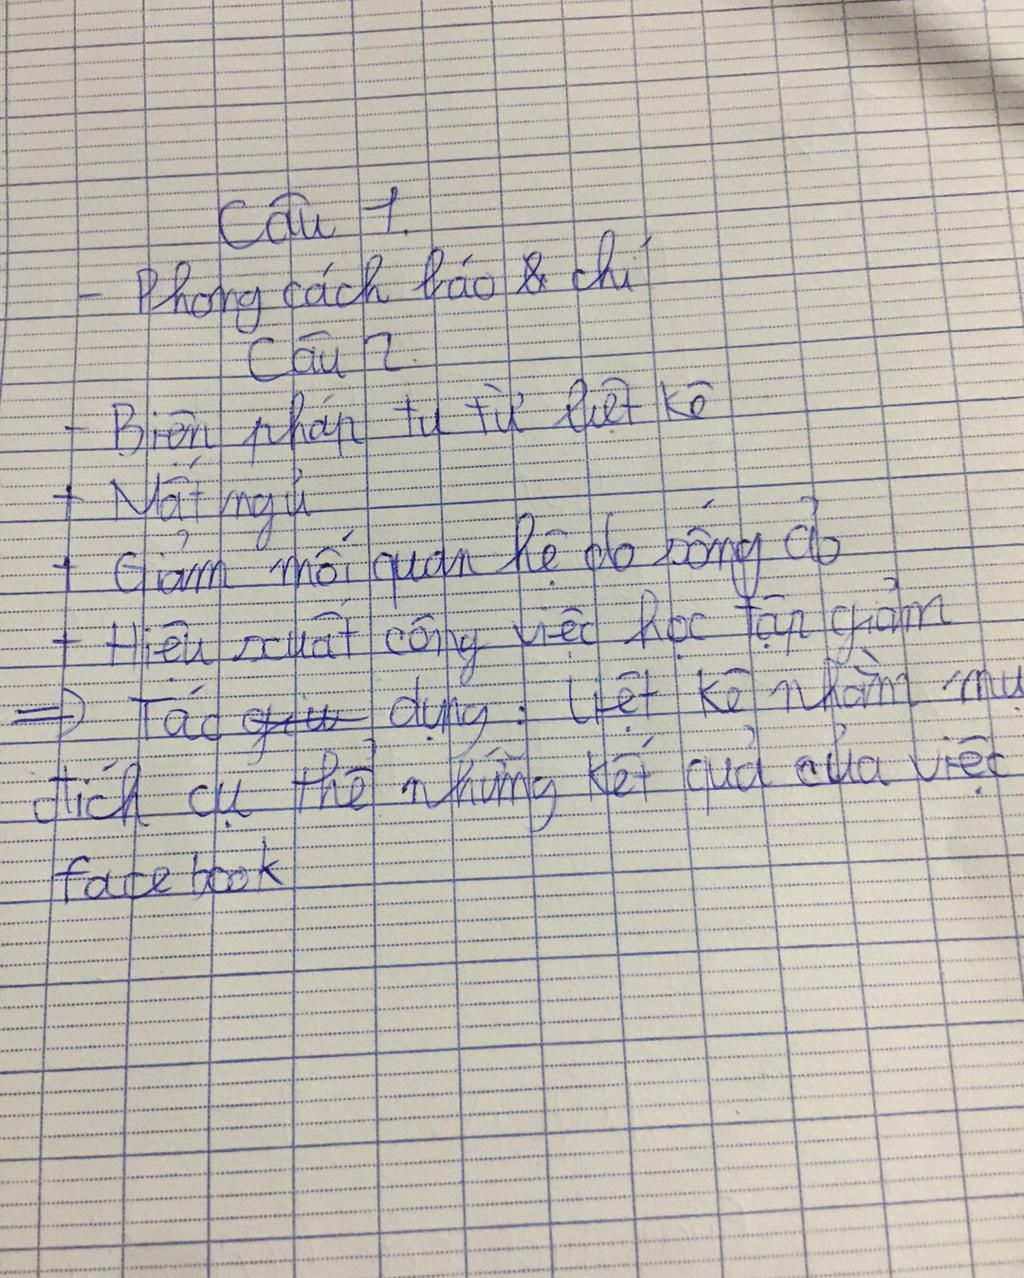 Câu 1.
- Phong cách báo & chí
Câu 2.
- Biện pháp tu từ liệt kê
+ Mất ngủ
+ Giảm mối quan hệ do sống ảo
+ Hiệu suất công việc học tập giảm
=> Tác dụng: Liệt kê nhằm mụ
đích cụ thể những kết quả của việc
facebook